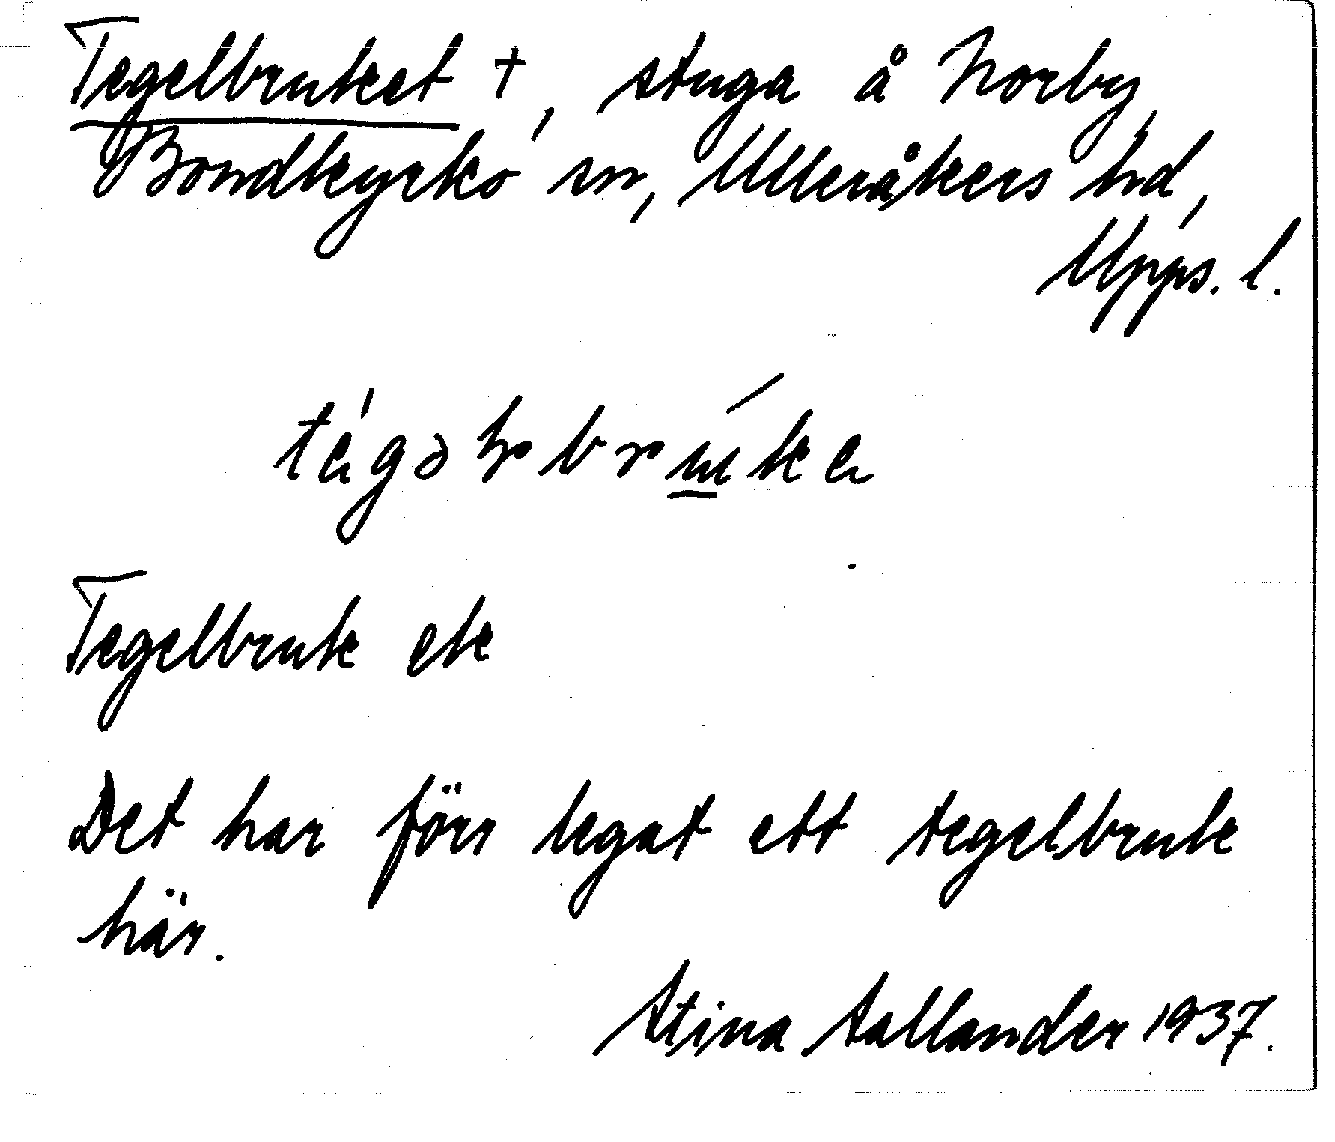 Tegelbruket †, stuga å Norby,
Bondkyrko sn, Ulleråkers hd,
Upps. l.
Tegelbruk ek
Det har förr legat ett tegelbruk
här.
Stina Sallander 1937.